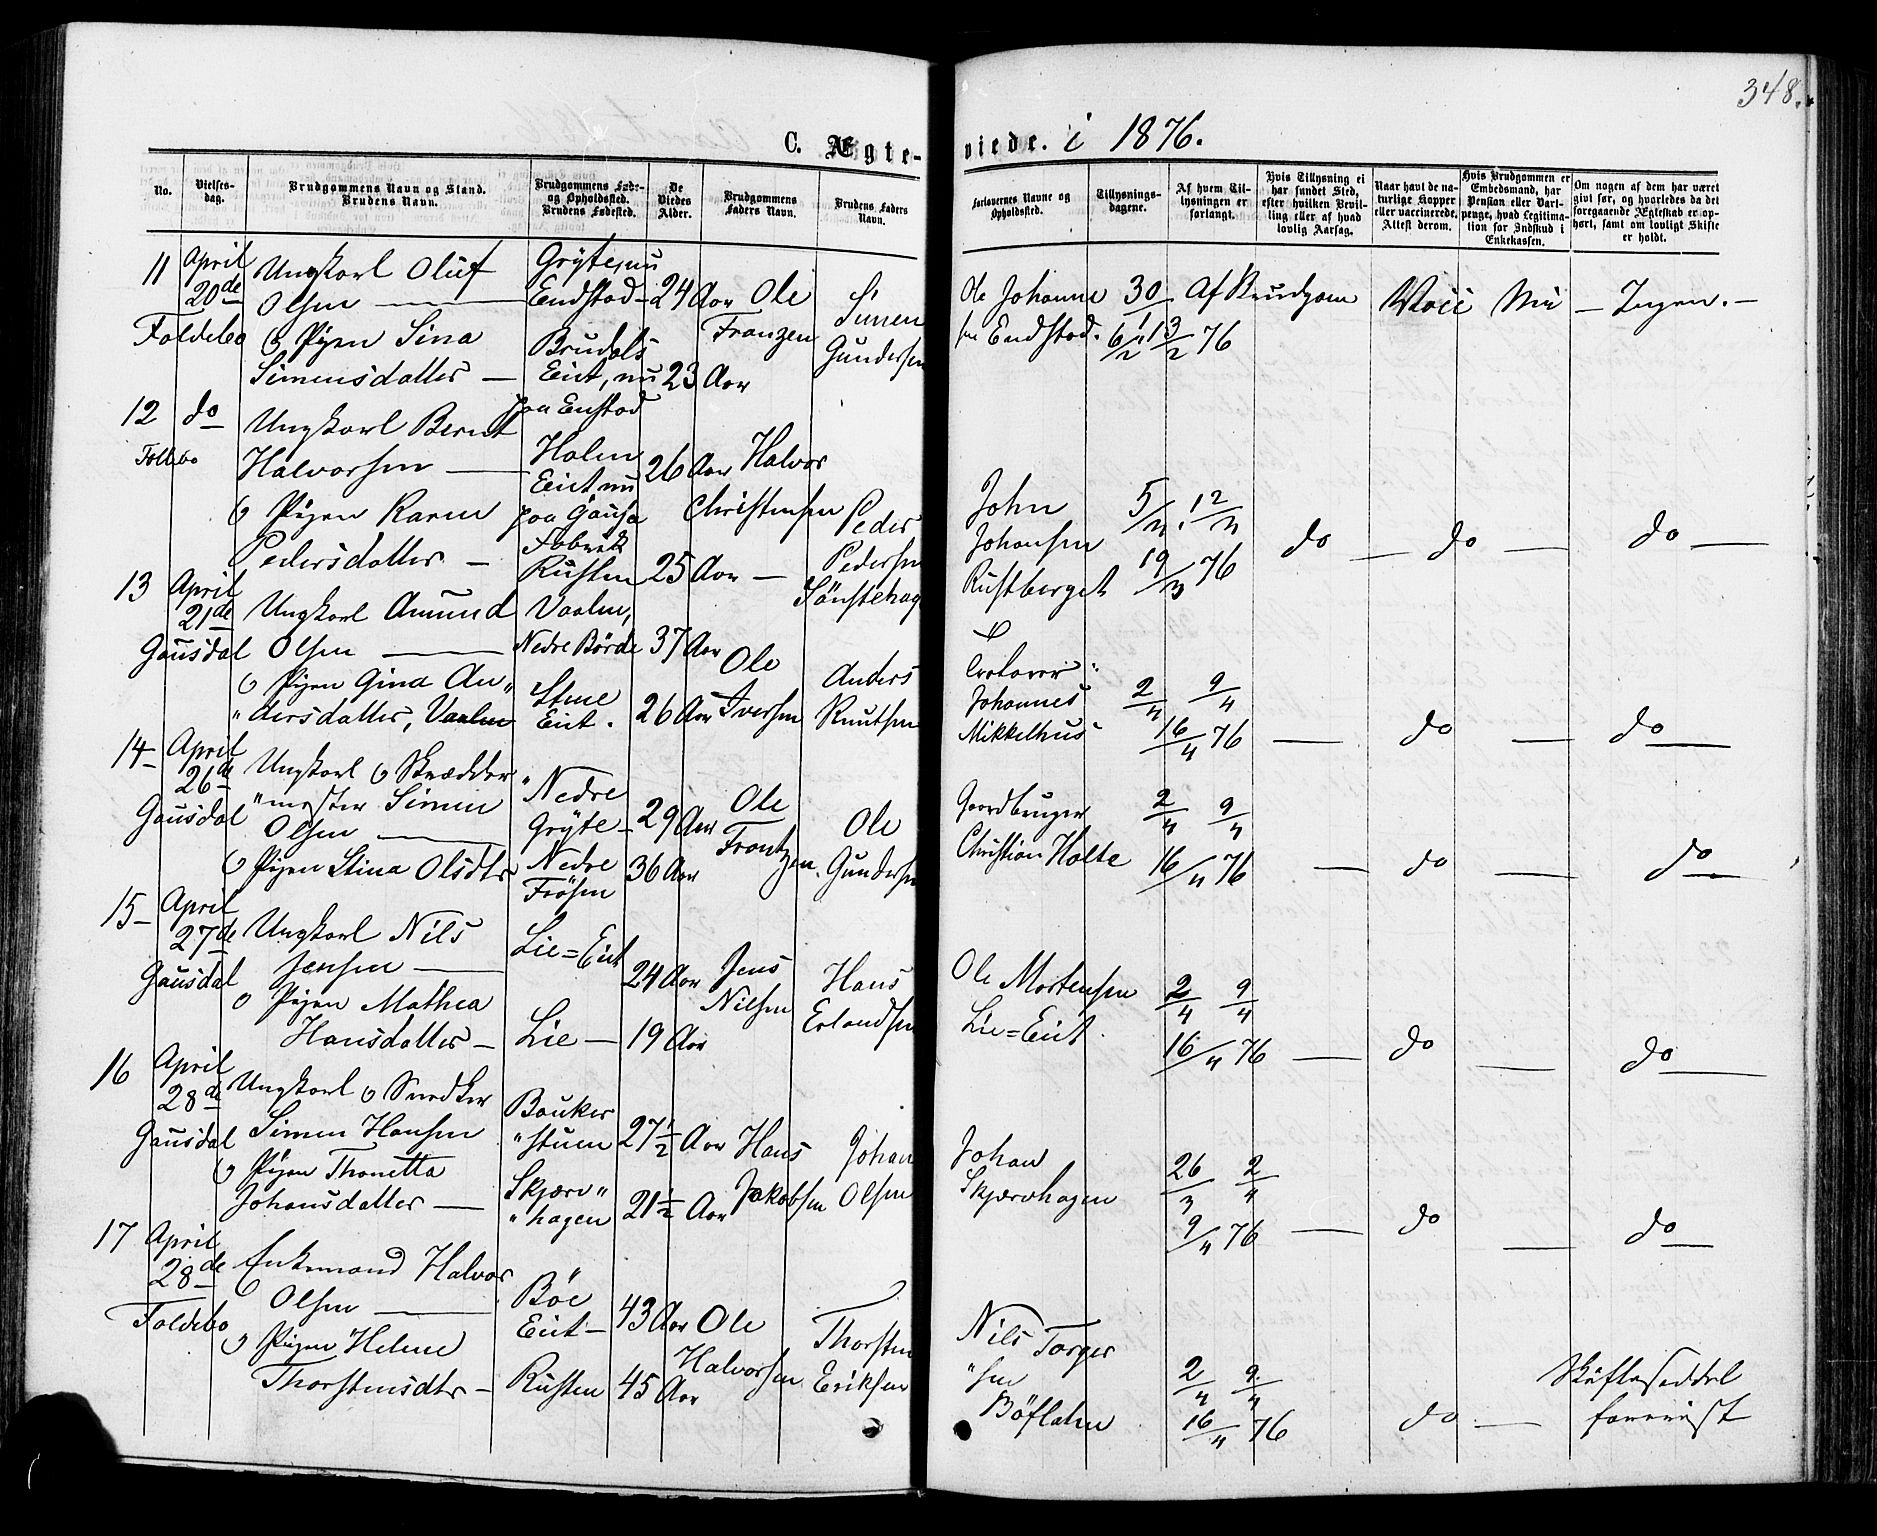 348.
C. Ægteviede. i 1876.
No.
Vielsesdag.
Brudgommens Navn og Stand.
Brudens Navn.
Brudgommens Føde-
og Opholdssted.
Brudens Fødested.
De
Viedes
Alder.
Brudgommens
Faders Navn.
Brudens Faders
Navn.
Forlovernes Navne og
Opholdssted.
Tillysnings-
dagene.
Af hvem Til-
lysningen er
forlangt.
Hvis Tillysning ei
har fundet Sted,
efter hvilken Bevil-
ling eller af hvad
lovlig Aarsag.
Naar havt de na-
turlige Kopper
eller vaccinerede.
Attest derom.
Hvis Brudgommen er
Embedsmand, har
Pension eller Vart-
penge, hvad Legitima-
tion for Indskud i
Enkekassen.
Om nogen af dem har været
givt før, og hvorledes da det
foregaaende Ægteskab er op-
hørt, samt om lovligt Skifte
er holdt.
11 April 20de Foldebo
Ungkarl Oluf
Olsen
o Pigen Sina
Simensdatter
Gryte, nu
Endstad
Brudals
Eiet, nu
paa Enstad
24 Aar
23 Aar
Ole
Franzen
Simen
Gundersen
Ole Johanne
sen Endstad.
30/1 6/2 13/2 76
Af Brudgom
Ingen.
12 do Follebo
Ungkarl Bernt
Halvorsen
o Pigen Karen
Pedersdatter
Holen
Eiet nu
paa Gausa
Fabrik
Rusten
26 Aar
25 Aar
Halvor
Christensen
Peder
Pedersen
John
Johansen
Rustberget
5/3. 12/3
19/3 76
do do do
13 April 21de Gausdal
Ungkarl Amund
Olsen
o Pigen Gina An„
„dersdatter, Vaalen
Vaalen,
Nedre Börde
Stene
Eiet.
37 Aar
26 Aar
Ole
Iversen
Anders
Knutsen
Johannes
Mikkelhus
2/4 9/4
16/4 76
do do
14 April 26de Gausdal
Ungkarl o Skrædder„
„mester Simen
Olsen
o Pigen Stina Olsdtr
Nedre
Gryte
Nedre
Frösen
29 Aar
36 Aar
Ole
Frantzen.
Ole
Gundersen
Gaardbruger
Christian Holte
2/4 9/4
16/4 76
do do
15 April 27de Gausdal
Ungkarl Nils
Jensen
o Pigen Mathea
Hansdatter
Lie=Eiet
Lie
24 Aar
19 Aar
Jens
Nilsen
Hans
Erlandsen
Ole Mortensen
Lie=Eiet.
2/4 9/4
16/4 76
do do
16 April 28de Gausdal
Ungkarl o Snedker
Simen Hansen
o Pigen Thonetta
Johansdatter
Bauker
„stuen
Skjærv„
„hagen
27½ Aar
21½ Aar
Hans
Jakobsen
Johan
Olsen
Johan
Skjærvhagen
26/3 2/4
9/4 76
do do
17 April 28de Foldebo
Enkemand Halvor
Olsen
o Pigen Helene
Thorstensdtr
Böe
Eiet
Rusten
43 Aar
45 Aar
Ole
Halvorsen
Thorsten
Eriksen
Nils Torger
„sen
Böflaten
2/4 9/4
16/4 76
do
Skifteseddel
forevist